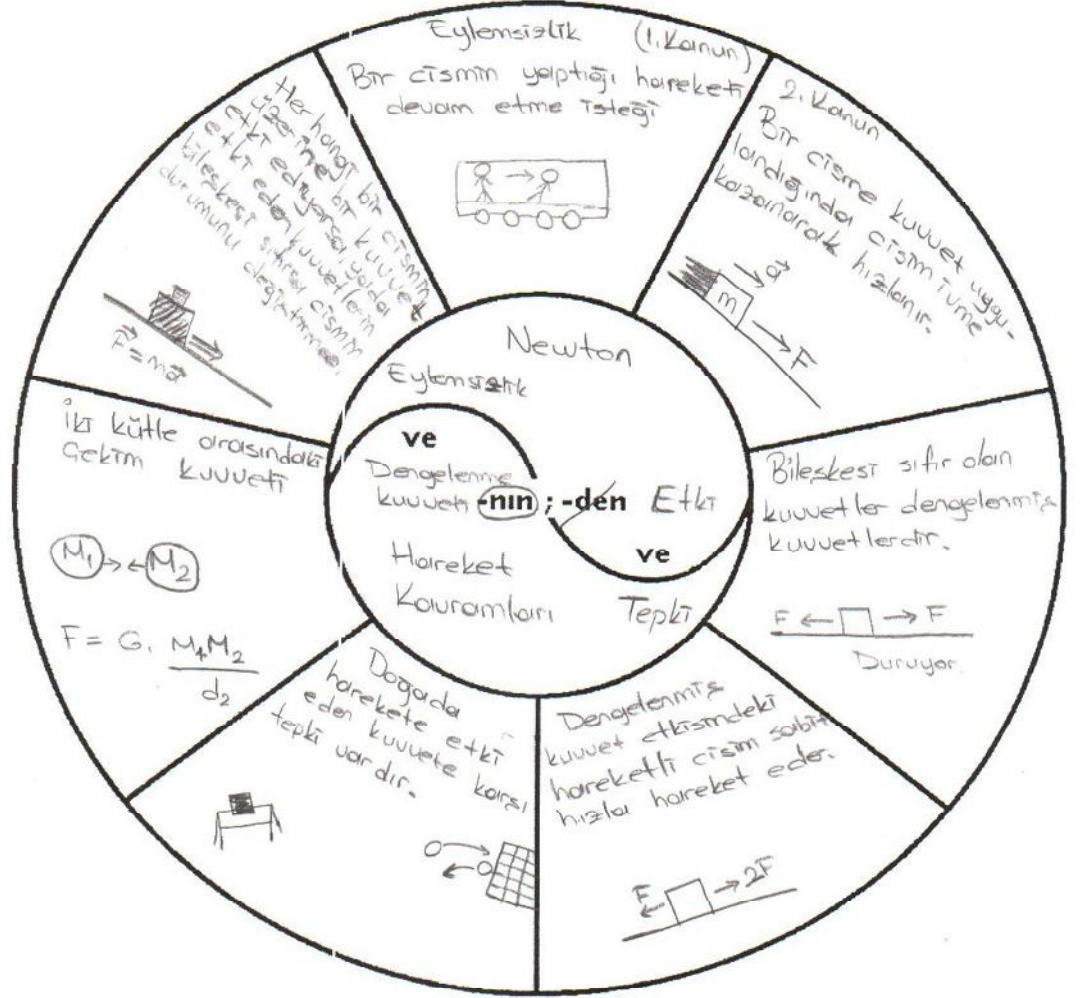 Eylemsizlik (1. Kanun)
Bir cismin yaptığı hareketi
devam etme isteği
2. Kanun
Bir cisme kuvvet uygu-
landığında cisim ivme
kazanarak hızlanır.
a
m
F
Bileşkesi sıfır olan
kuvvetler dengelenmiş
kuvvetlerdir.
F F
Duruyor.
Dengelenmiş
kuvvet etkisindeki
hareketli cisim sabit
hızla hareket eder.
F 2F
Doğada
harekete etki
eden kuvvete karşı
tepki vardır.
İki kütle arasındaki
Çekim kuvveti
M1 M2
F = G. M1M2
d2
Her hangi bir cismin
üzerine bir kuvvet
etki ediyorsa yada
etki eden kuvvetlerin
bileşkesi sıfırsa cismin
durumunu değiştirmez.
F=ma
Newton
Eylemsizlik
ve
Dengelenme
kuvveti -nın ; -den Etki
ve
Hareket
Kavramları Tepki